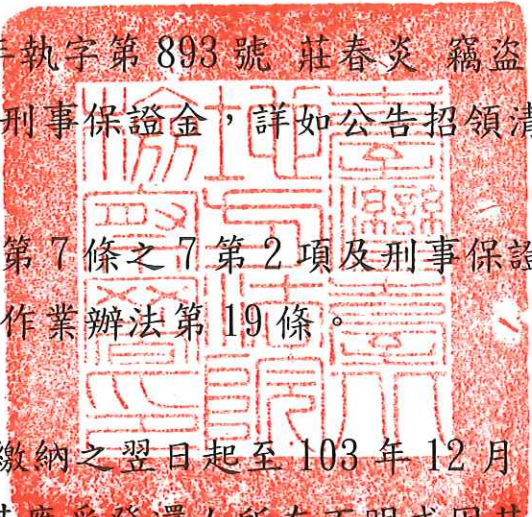 年執字第 893 號 莊春炎 竊盜
刑事保證金，詳如公告招領清
第 7 條之 7 第 2 項及刑事保證
作業辦法第 19 條。
繳納之翌日起至 103 年 12 月
其應受發還人所在不明或因其
臺灣臺
地方法院
檢察署印